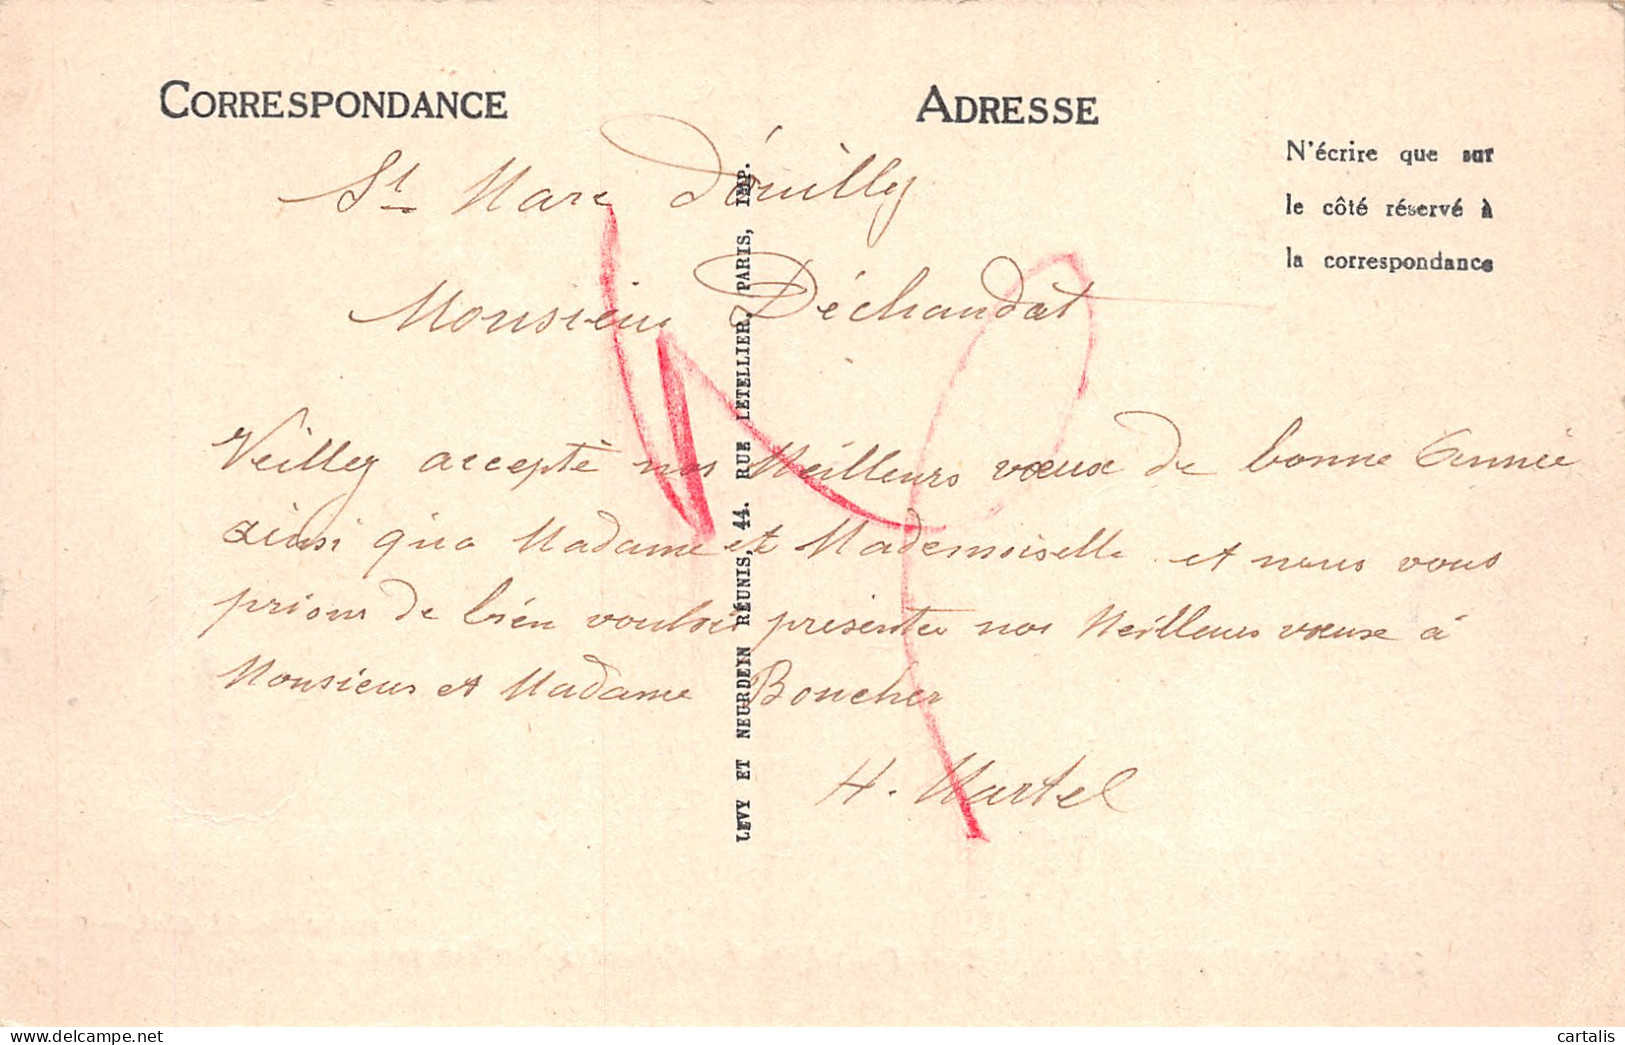 CORRESPONDANCE
ADRESSE
N'écrire que sur
le côté réservé à
la correspondance
St Marc d'ouilly
Monsieur Déchandat
Veilley accepté nos Meilleurs vœux de bonne Année
ainsi qu'a Madame et Mademoiselle et nous vous
prions de bien vouloir présenter nos Meilleurs vœux à
Monsieur et Madame Boucher
H. Martel
LEVY ET NEURDEIN RÉUNIS, 44. RUE LETELLIER, PARIS, IMP.
cartalis
delcampe.net